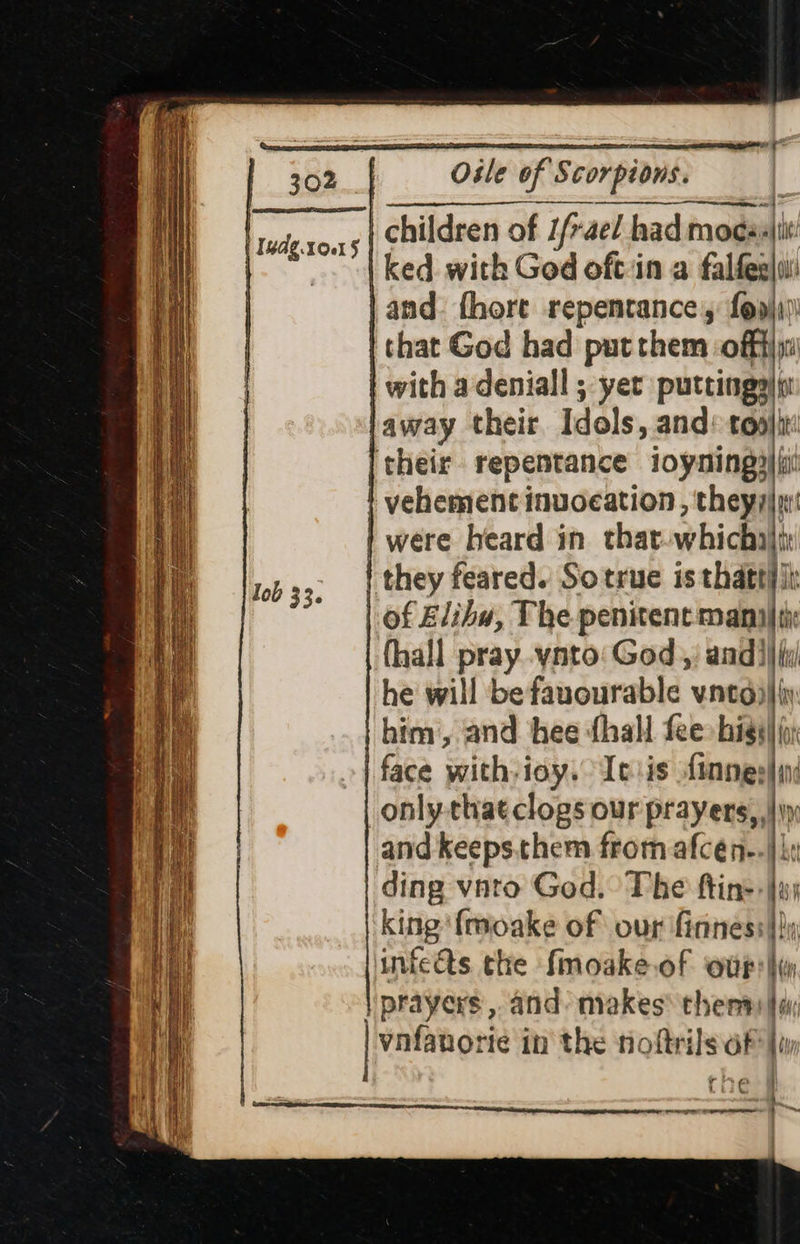 302
Oile of Scorpions.
Iudg.10.15
children of Iſrael had moc-
ked with God oft in a falſe
and ſhort repentance, ſo
that God had put them off
with a deniall; yet putting
away their Idols, and to
their repentance ioyning
vehement inuocation, they
were heard in that which
they feared. So true is that
Iob 33.
of Elihu, The penitent man
ſhall pray vnto God, and
he will be fauourable vnto
him, and hee ſhall ſee his
face with ioy. It is ſinne
only that clogs our prayers,
and keeps them from aſcen-
ding vnto God. The ſtin-
king ſmoake of our ſinnes
infects the ſmoake of our
prayers, and makes them
vnſauorie in the noſtrils of
the